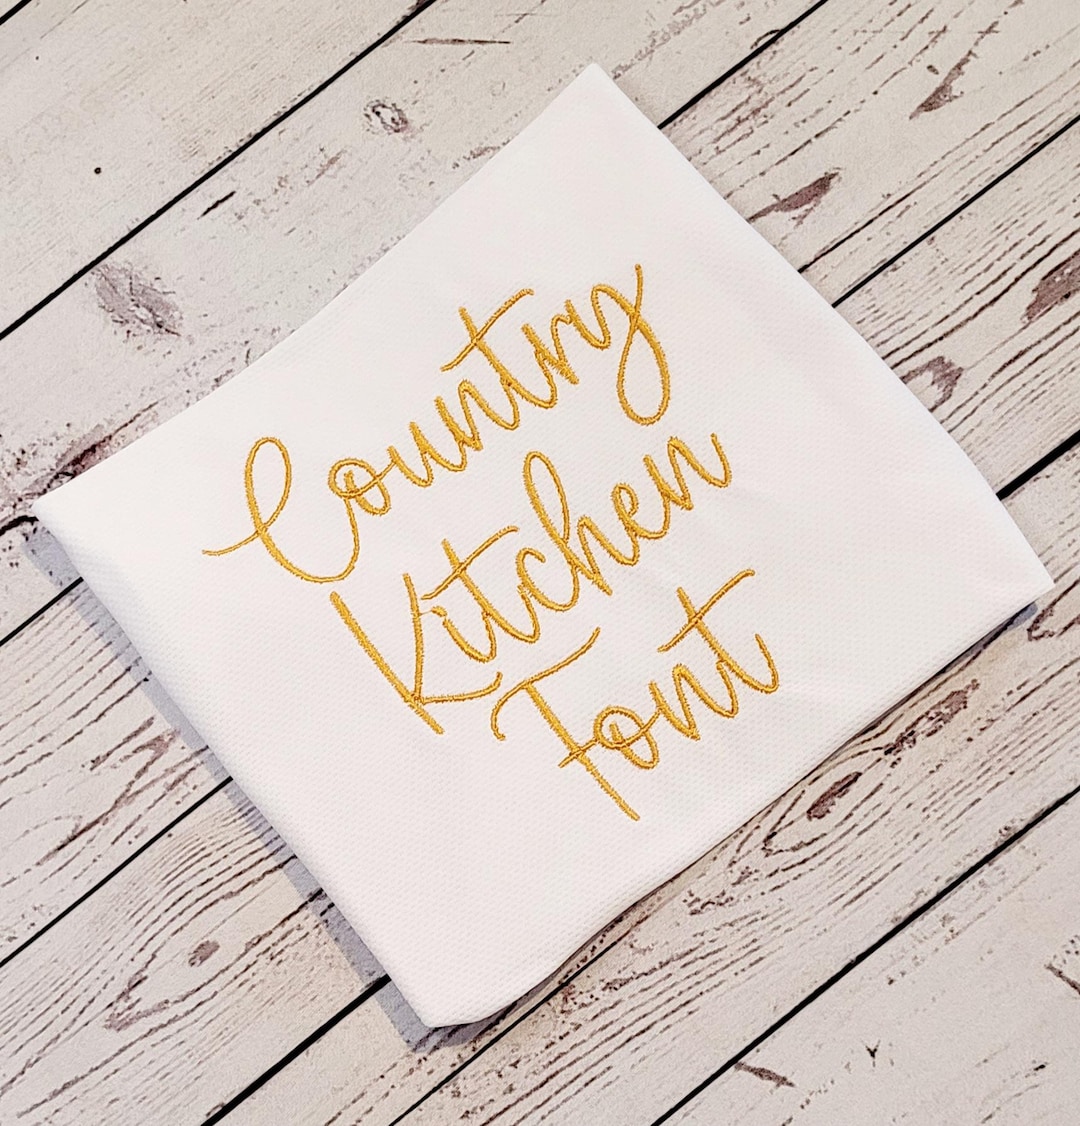 Country
Kitchen
Font